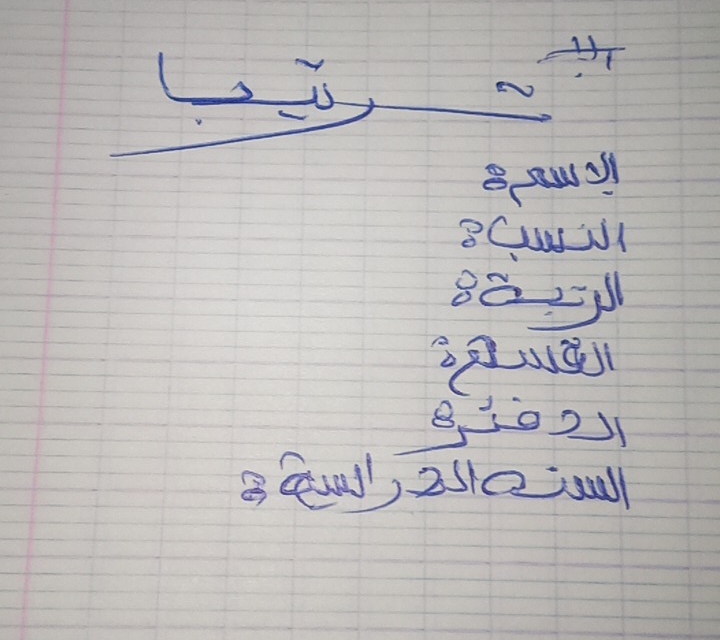 الإسم:
النسب:
الرتبة:
القسم:
الدفتر:
السنة الدراسية: